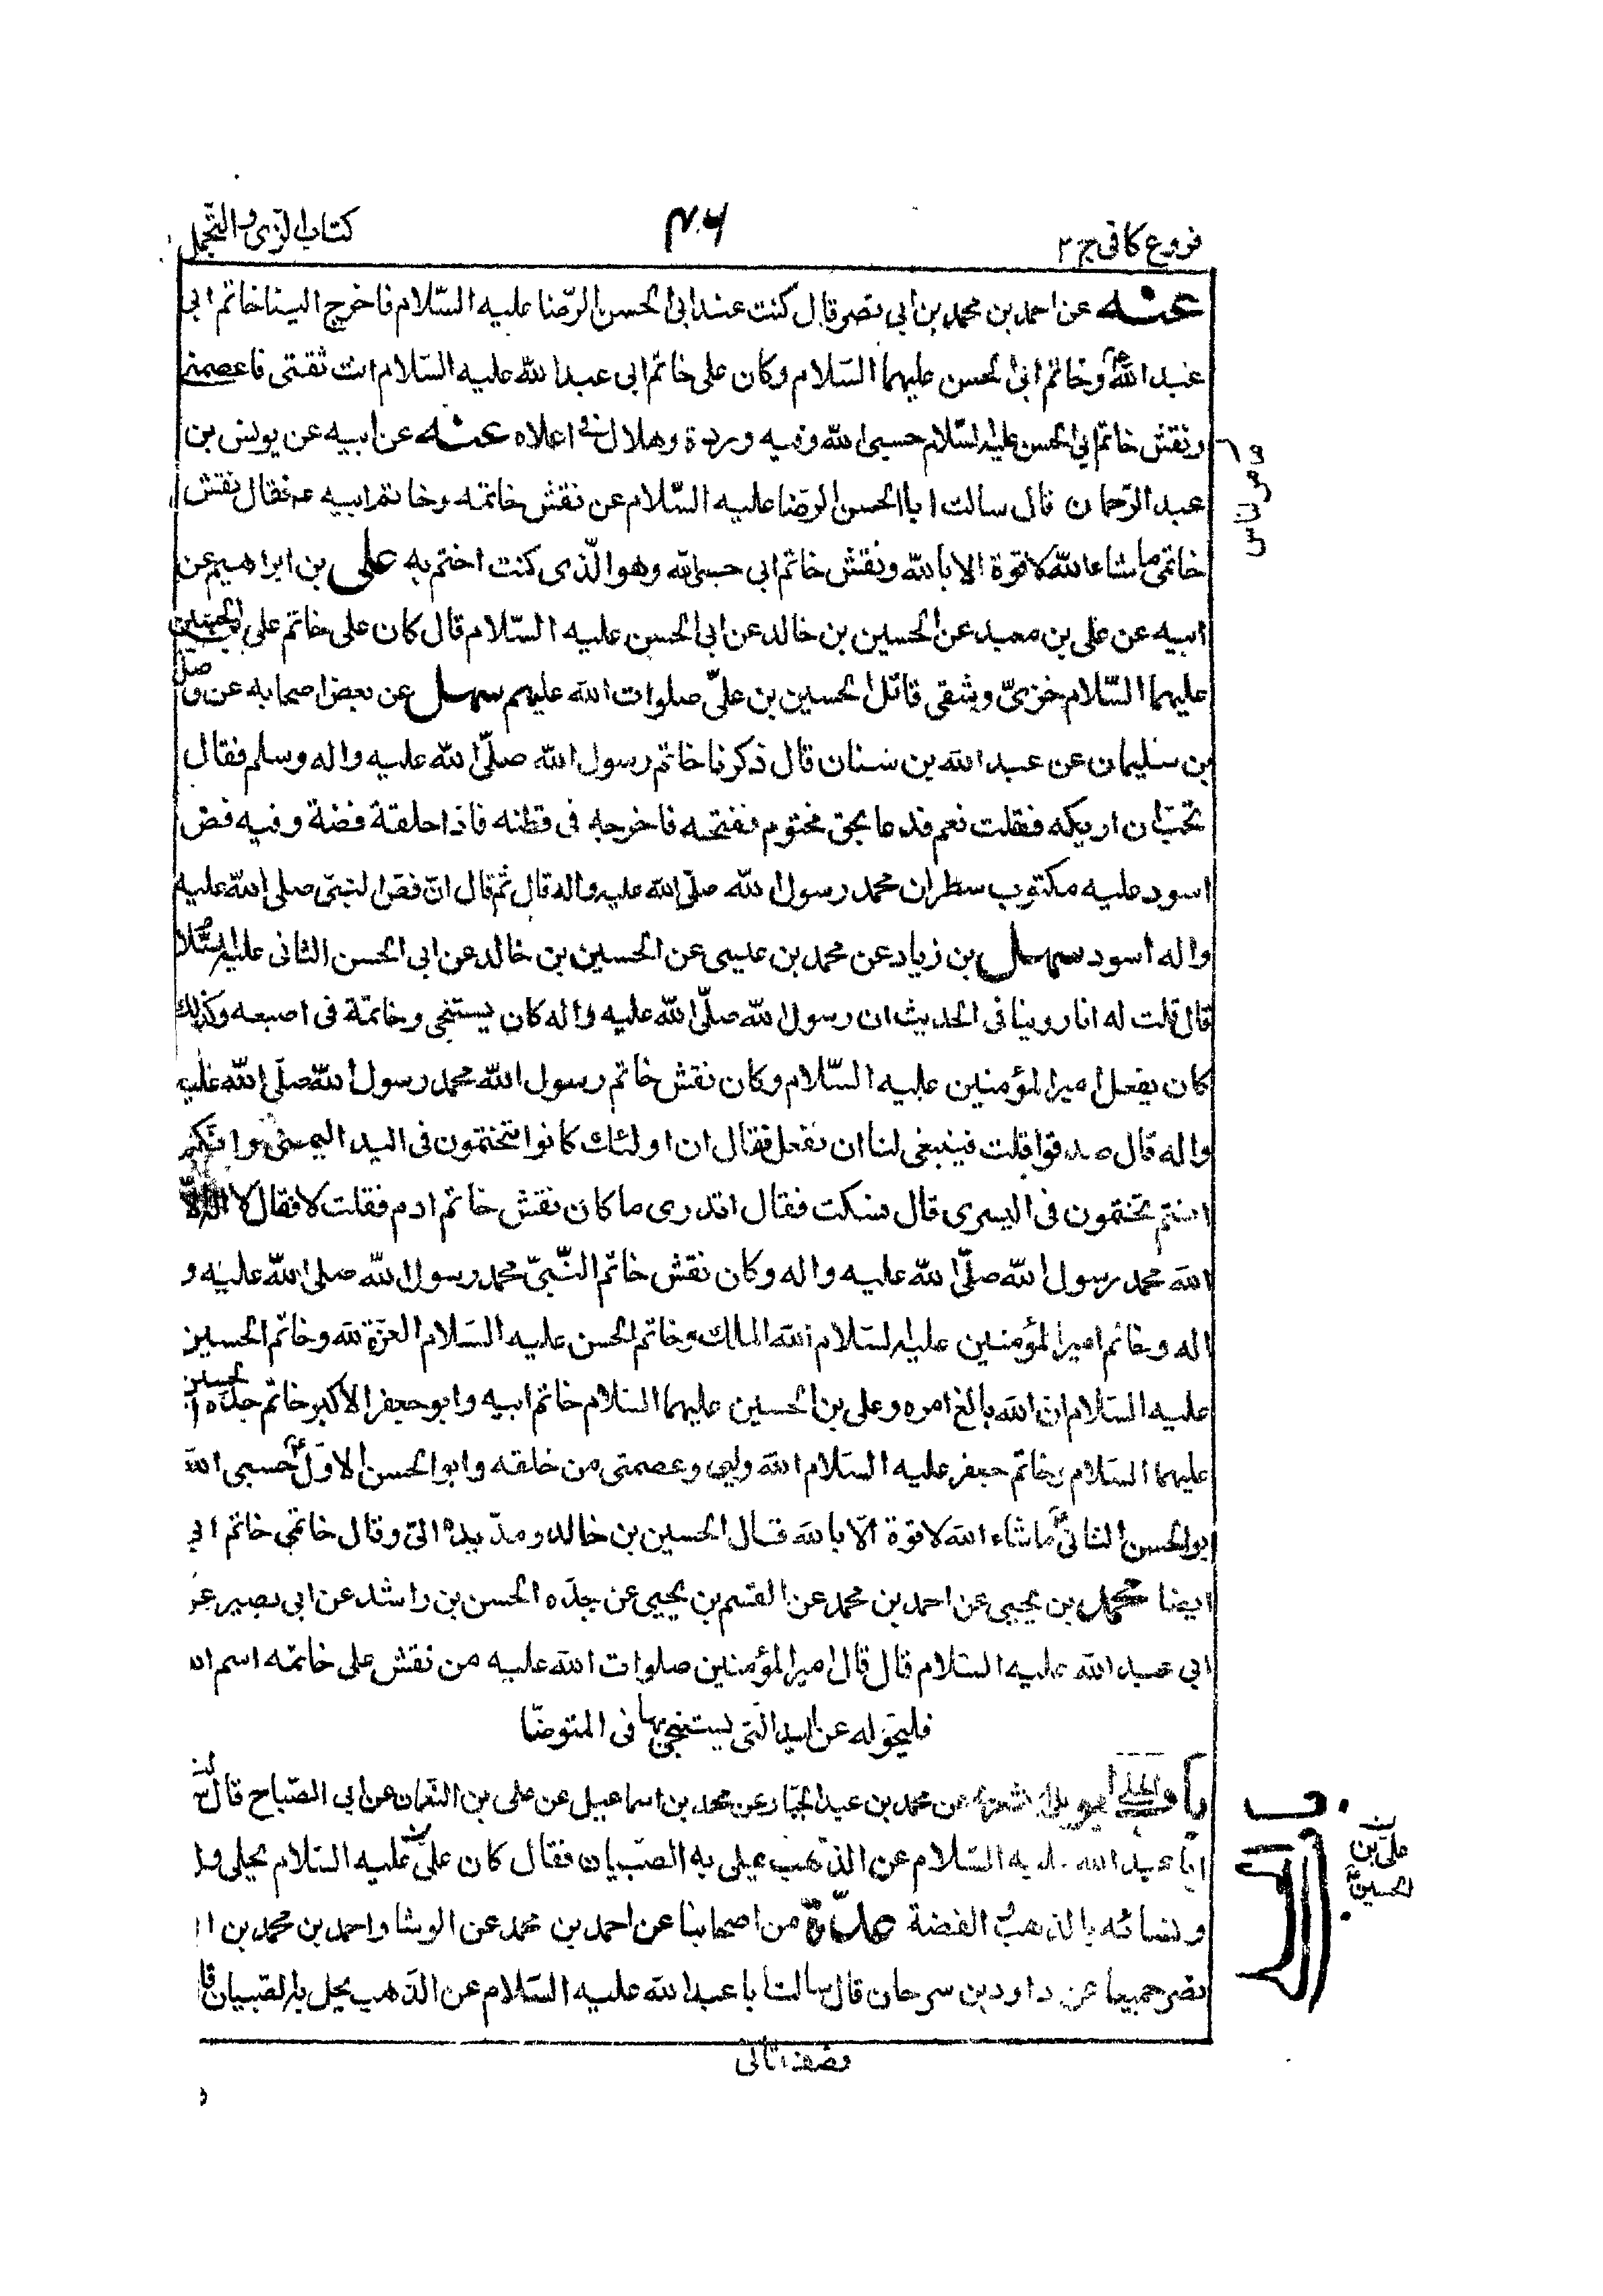 فروع كافى ج ٢
٣٠٦
كتاب الزى و التجمل
عنه عن احمد بن محمد بن ابى نصر قال كنت عند ابى الحسن الرّضا عليه السّلام فاخرج الينا خاتم ابى
عبد اللّه ع وخاتم ابى الحسن عليهما السّلام وكان على خاتم ابى عبد اللّه عليه السّلام انت ثقتى فاعصمنى
ونقش خاتم ابى الحسن عليه السّلام حسبى اللّه وفيه وردة وهلال فى اعلاه عنه عن ابيه عن يونس بن
عبد الرّحمان قال سالت ابا الحسن الرضا عليه السّلام عن نقش خاتمه وخاتم ابيه ع فقال نقش
خاتمى ما شاء اللّه لا قوة الا باللّه ونقش خاتم ابى حسبى اللّه وهو الّذى كنت اختم به على بن ابراهيم عن
ابيه عن على بن معبد عن الحسين بن خالد عن ابى الحسن عليه السّلام قال كان على خاتم على بن الحسين
عليهما السّلام خزىّ وشقى قاتل الحسين بن علىّ صلوات اللّه عليهم سهل عن بعض اصحابه عن واصل
بن سليمان عن عبد اللّه بن سنان قال ذكرنا خاتم رسول اللّه صلّى اللّه عليه واله وسلم فقال
تحبّ ان اريكه فقلت نعم فدعا بحق مختوم ففتحه فاخرجه فى قطنه فاذا حلقة فضة وفيه فص
اسود عليه مكتوب سطران محمد رسول اللّه صلّى اللّه عليه واله قال ثم قال انّ فصّ النبىّ صلى اللّه عليه
واله اسود سهل بن زياد عن محمد بن عيسى عن الحسين بن خالد عن ابى الحسن الثانى عليه السّلام
قال قلت له انا روينا فى الحديث ان رسول اللّه صلّى اللّه عليه واله كان يستنجى وخاتمة فى اصبعه وكذلك
كان يفعل امير المؤمنين عليه السّلام وكان نقش خاتم رسول اللّه محمد رسول اللّه صلّى اللّه عليه
واله قال صدقوا قلت فينبغى لنا ان نفعل فقال ان اولئك كانوا يتختمون فى اليد اليمنى وانكم
انتم تختمون فى اليسرى قال فسكت فقال اتدرى ما كان نقش خاتم ادم فقلت لا فقال لا اله الّا
اللّه محمد رسول اللّه صلّى اللّه عليه واله وكان نقش خاتم النّبىّ محمد رسول اللّه صلى اللّه عليه و
اله وخاتم امير المؤمنين عليه السّلام اللّه الملك وخاتم الحسن عليه السّلام العزة للّه وخاتم الحسين
عليه السّلام ان اللّه بالغ امره وعلى بن الحسين عليهما السّلام خاتم ابيه وابو جعفر الاكبر خاتم جدّه الحسين
عليهما السّلام وخاتم جعفر عليه السّلام اللّه وليى وعصمتى من خلقه وابو الحسن الاوّل ع حسبى اللّه
ابو الحسن الثانى ع ماشاء اللّه لا قوة الّا باللّه قال الحسين بن خالد ومدّ يده الىّ وقال خاتمى خاتم ابى
ايضا محمد بن يحيى عن احمد بن محمد عن القسم بن يحيى عن جدّه الحسن بن راشد عن ابى بصير عن
ابى عبد اللّه عليه السّلام قال قال امير المؤمنين صلوات اللّه عليه من نقش على خاتمه اسم اللّه
فليحوله عن اليد التى يستنجى بها فى المتوضّا
باب الحلى ابو على الاشعرى عن محمد بن عبد الجبار عن محمد بن اسماعيل عن على بن النّعمان عن ابى الصّباح قال سالت
ابا عبد اللّه عليه السّلام عن الذهب يحلى به الصّبيان فقال كان علىّ عليه السّلام يحلى ولده
ونسائه بالذهب والفضة عدّة من اصحابنا عن احمد بن محمد عن الوشا واحمد بن محمد بن ابى
نصر جميعا عن داود بن سرحان قال سالت ابا عبد اللّه عليه السّلام عن الذّهب يحلى به الصبيان قال
على بن
الحسين ع